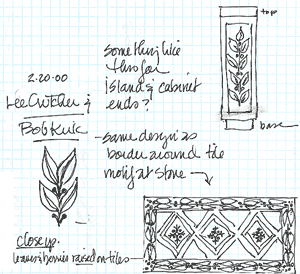 top
something like
this for
island & cabinet
ends?
2-20-00
&
Bob
base
same design as
border around tile
motif at stove
close up
leaves & berries raised on tiles